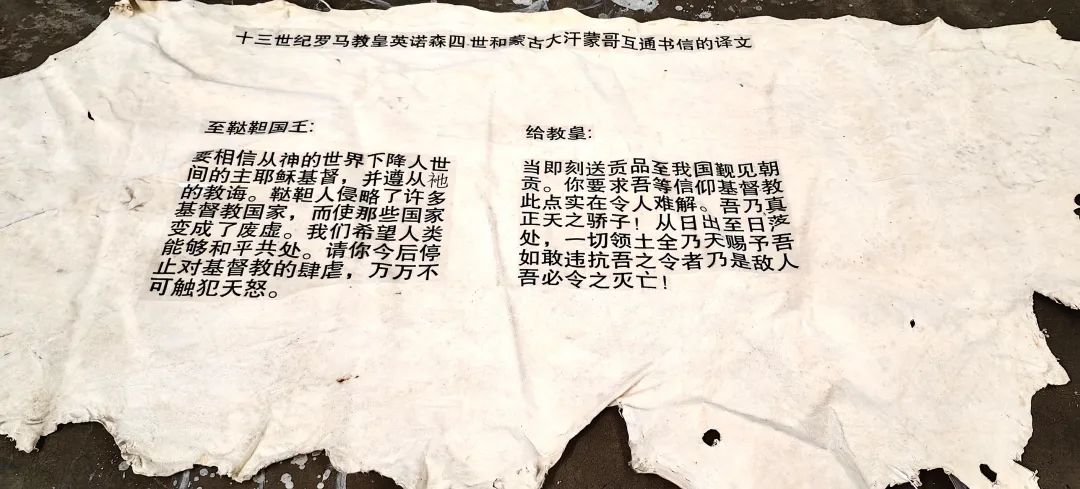 十三世纪罗马教皇英诺森四世和蒙古大汗蒙哥互通书信的译文
至鞑靼国王:
要相信从神的世界下降人世
间的主耶稣基督，并遵从祂
的教诲。鞑靼人侵略了许多
基督教国家，而使那些国家
变成了废虚。我们希望人类
能够和平共处。请你今后停
止对基督教的肆虐，万万不
可触犯天怒。
给教皇:
当即刻送贡品至我国觐见朝
贡。你要求吾等信仰基督教
此点实在令人难解。吾乃真
正天之骄子！从日出至日落
处，一切领土全乃天赐予吾
如敢违抗吾之令者乃是敌人
吾必令之灭亡！